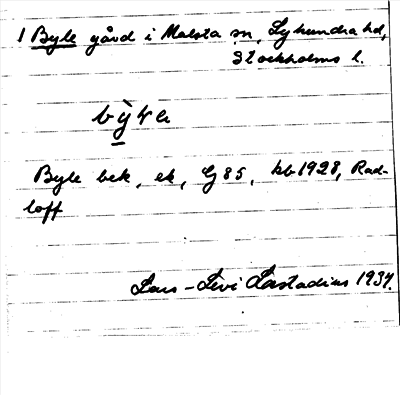 1 Byle gård i Malsta sn, Lyhundra hd,
Stockholms l.
Byle bek, ek, G 85, kb 1928, Rad-
loff
Lars-Levi Læstadius 1937.